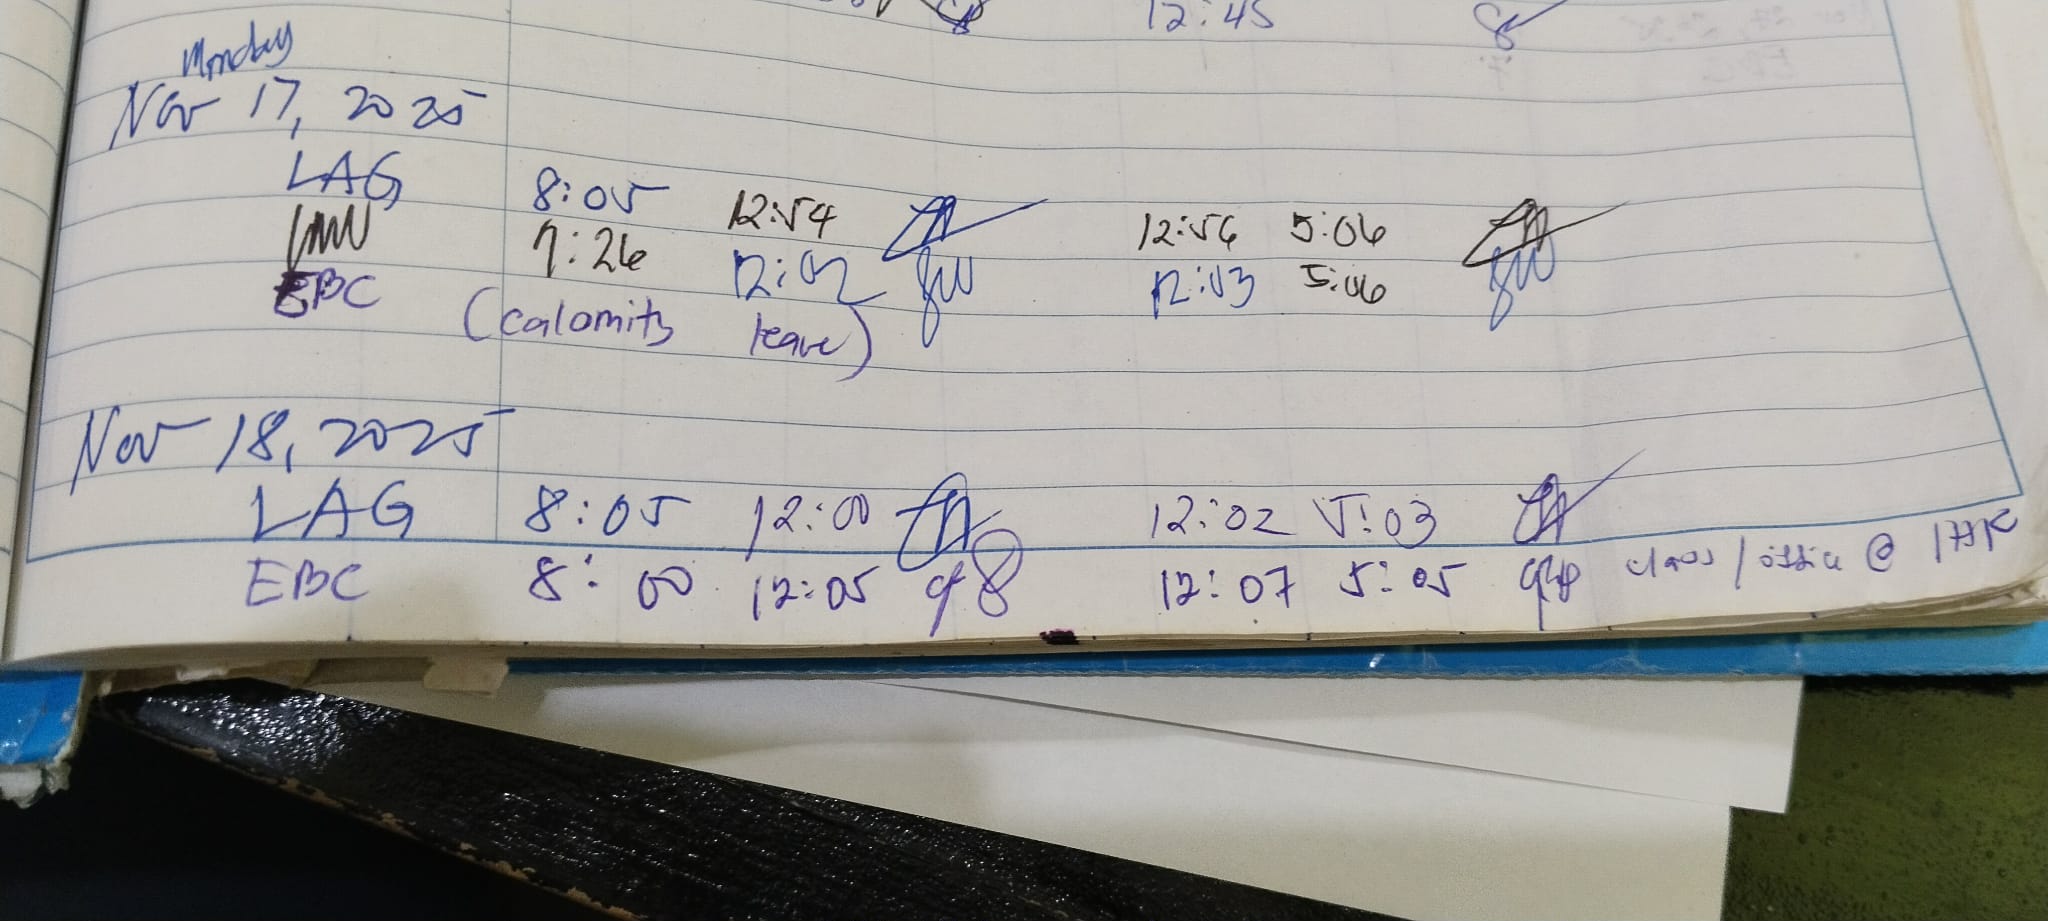 12:45
Monday
Nov 17, 2025
LAG 8:05 12:54 12:56 5:06
7:26 12:02 12:03 5:06
EBC (calamity leave)
Nov 18, 2025
LAG 8:05 12:00 12:02 5:03
EBC 8:00 12:05 12:07 5:05 class/office @